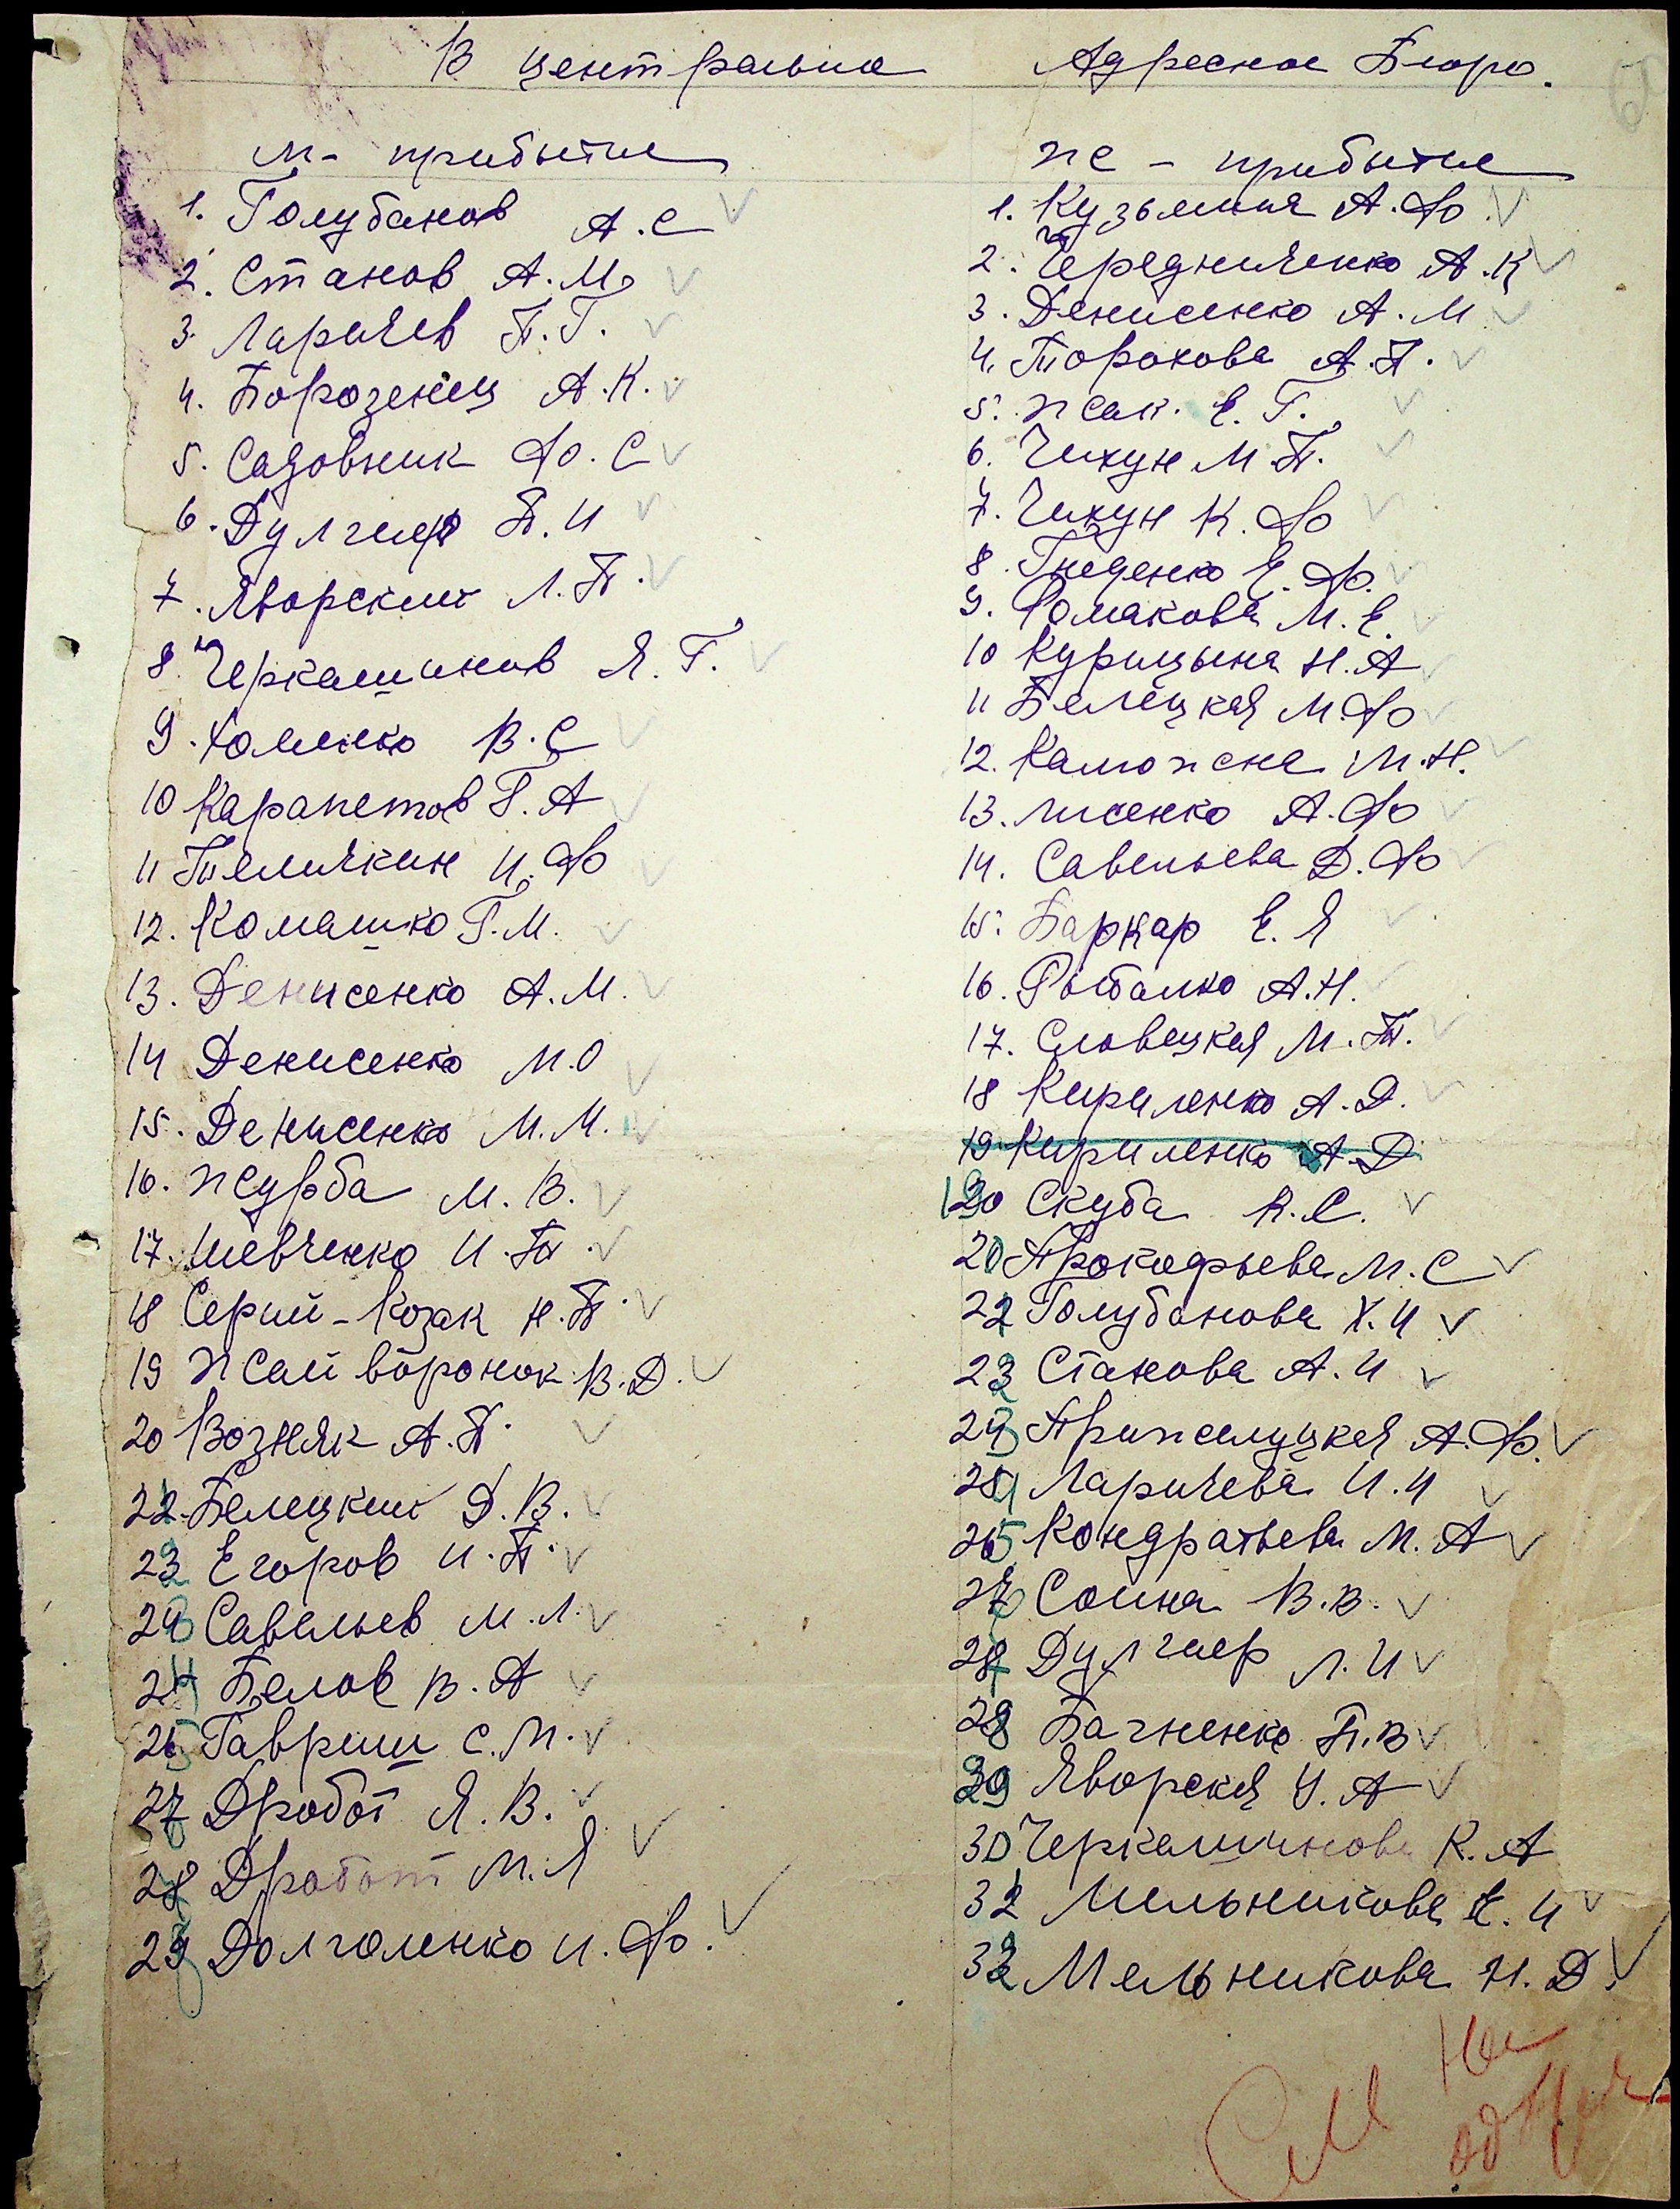 В центрально Адресное Бюро.
м - прибытие
1. Голубанов А.С
2. Станов А.М.
3. Ларичев П.Г.
4. Борозенец А.К.
5. Садовник Ф.С
6. Дулгиер П.И
7. Яворский Л.П.
8. Черкашинов Я.Г.
9. Хоменко В.С
10 Карапетов Г.А
11 Теличкин И.Ф
12. Комашко Г.М.
13. Денисенко А.М.
14 Денисенко М.О
15. Денисенко М.М.
16. Журба М.В.
17. Шевченко И.Т.
18 Серый-Козак Н.П.
19 Жайворонок В.Д.
20 Возняк А.П.
21 Белецкий Д.В.
22 Егоров И.П.
23 Савельев М.Л.
24 Белов В.А
25 Гавриш С.М.
26 Дробот Я.В.
27 Дробот М.Я
28 Долголенко И.Ф.
ж - прибытие
1. Кузьмина А.Ф.
2. Чередниченко А.К
3. Денисенко А.М
4. Торохова А.П.
5. Жак Е.Г.
6. Чихун М.П.
7. Чихун К.Ф
8. Гнеденко Е.Ф.
9. Ромакова М.Е.
10 Курицына Н.А
11 Белецкая М.Ф
12. Калюжна М.Н.
13. Лисенко А.Ф
14. Савельева Д.Ф
15. Баркар Е.Я
16. Рыбалко А.Н.
17. Словецкая М.Т.
18 Кириленко А.Д.
19. Кириленко А.Д
19 Скуба К.С.
20 Прокофьева М.С
21 Голубанова Х.И
22 Станова А.И
23 Прижелуцкая А.Ф.
24 Ларичева И.И
25 Кондратьева М.А
26 Соина В.В.
27 Дулгиер Л.И
28 Бачненко П.В
29 Яворская У.А
30 Черкашинова К.А
31 Мельникова Е.И
32 Мельникова Н.Д.
См на